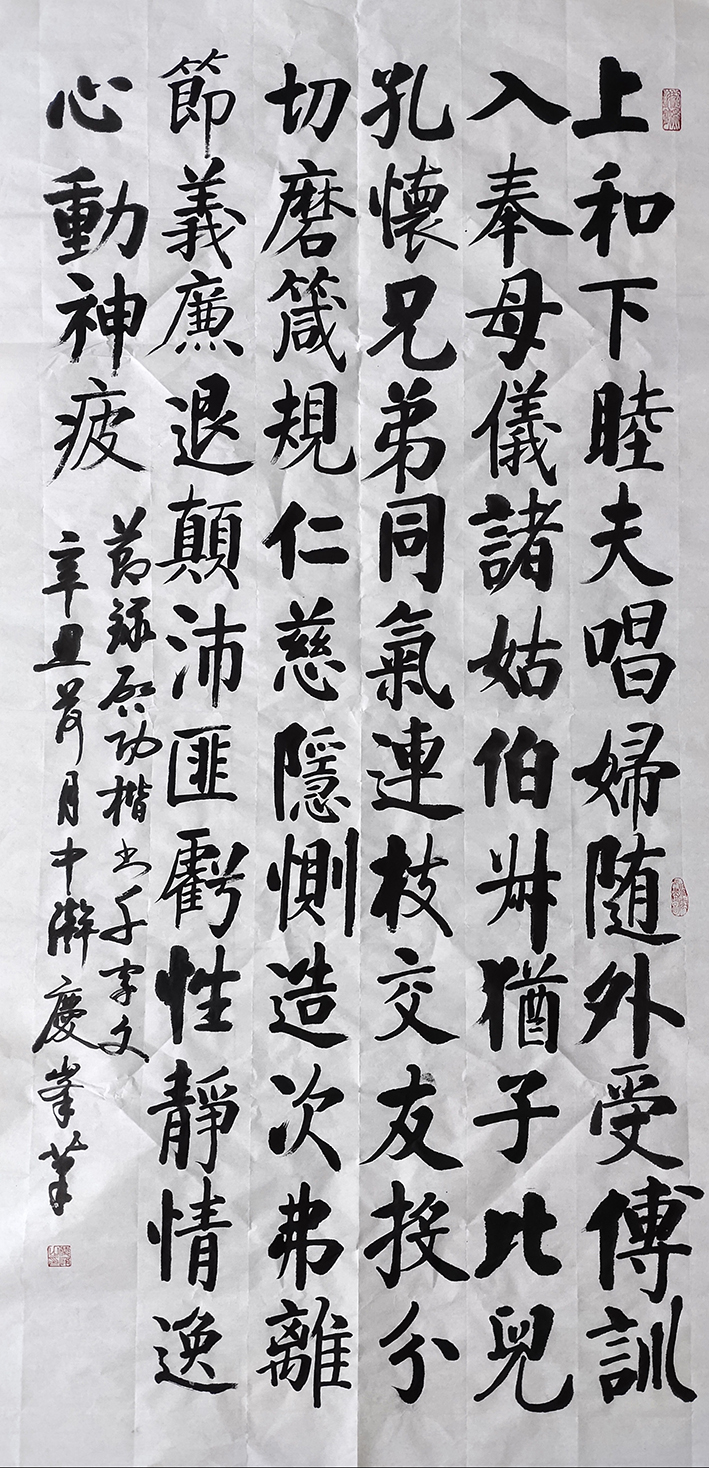 上和下睦夫唱婦随外受傅訓
入奉母儀諸姑伯叔猶子比兒
孔懷兄弟同氣連枝交友投分
切磨箴規仁慈隱惻造次弗離
節義廉退顛沛匪虧性靜情逸
心動神疲
節録啓功楷书千字文
辛丑荷月中澣慶峯筆